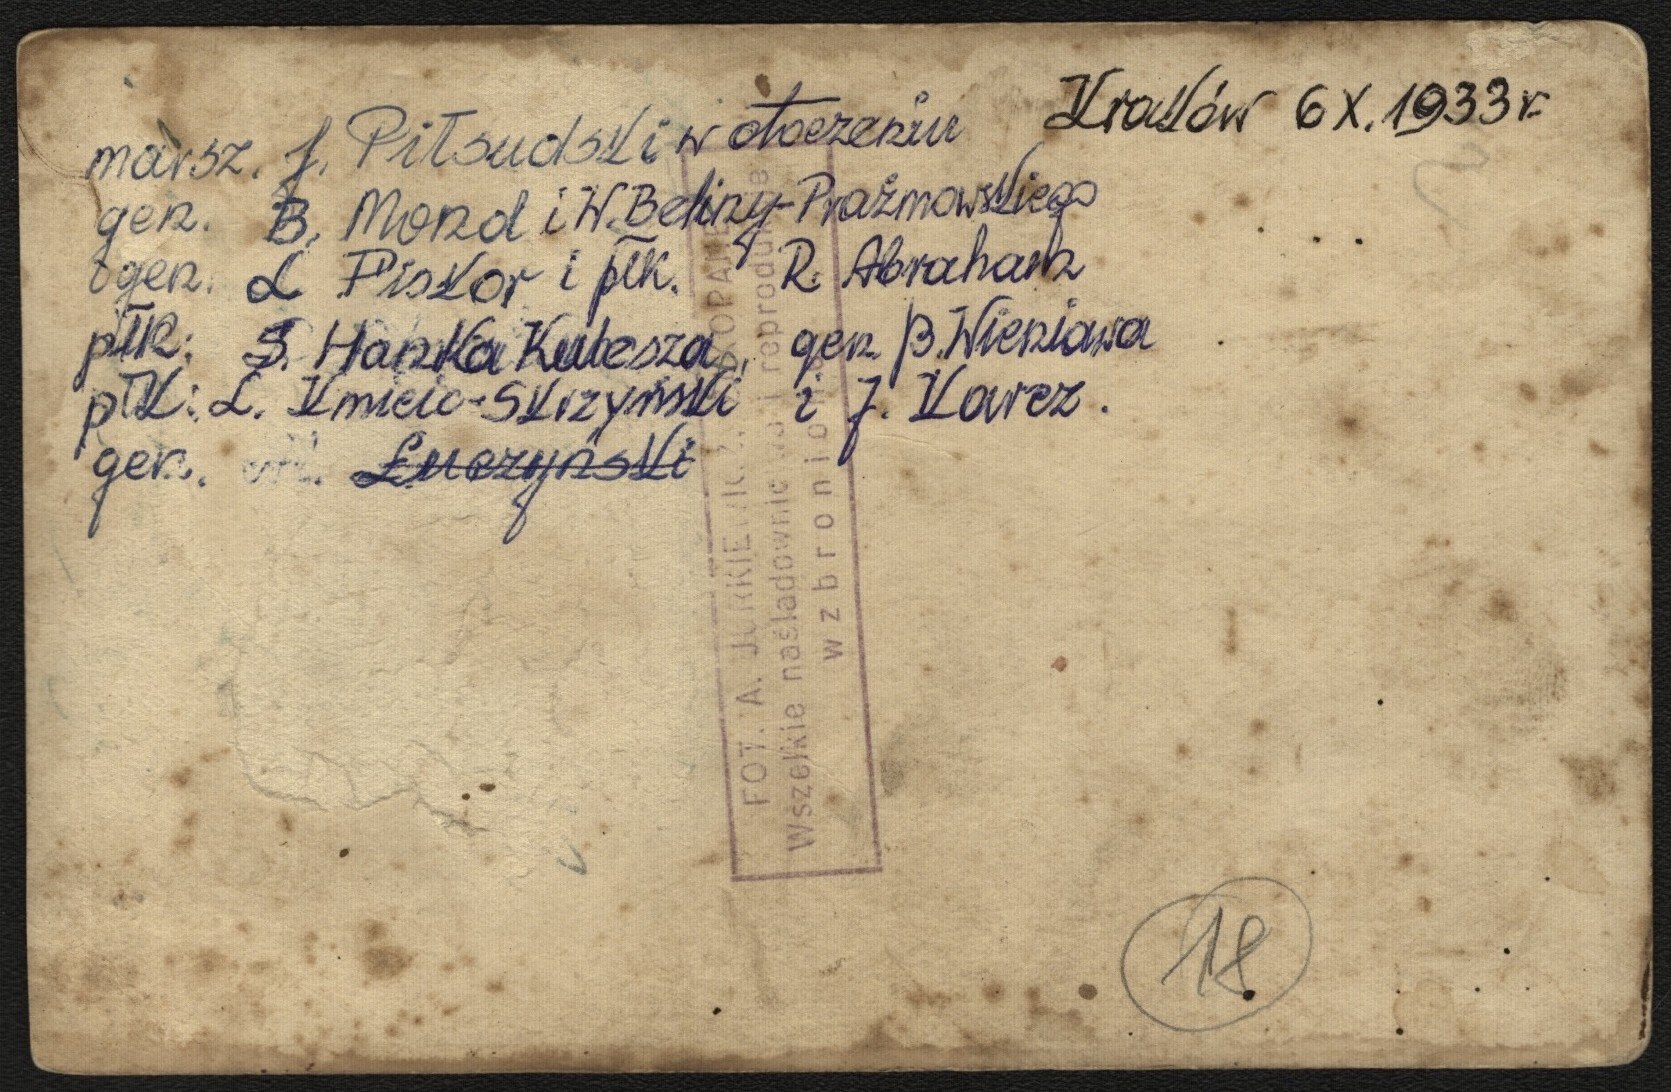 Kraków 6 X. 1933 r.
marsz. J. Piłsudski w otoczeniu
gen. B. Mond i W. Beliny-Prażmowskiego
gen. L Piskor i płk. R. Abraham
płk: S. Hanka Kulesza, gen. B. Wieniawa
płk: L. Kmicic-Skrzyński i J. Karcz.
gen. Łuczyński
FOT. A. ZAKOPANE
Wszelkie naśladownictwa i reprodukcje
wzbronione
18